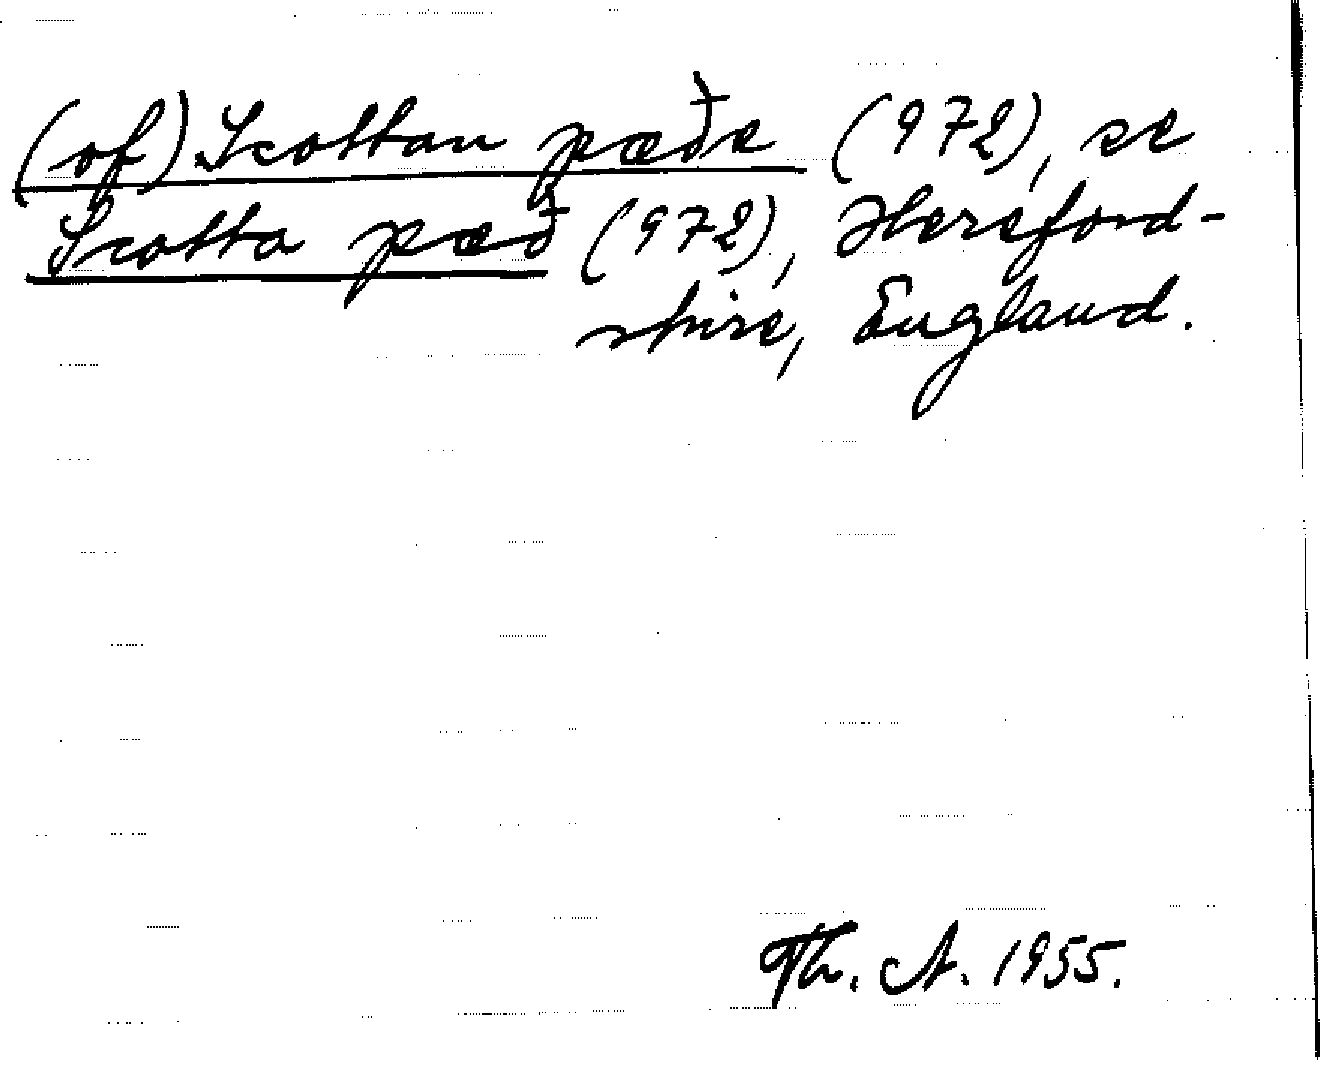 (of) Scottan pæðe (972), se
Scotta pæð (972), Hereford-
shire, England.
Th. A. 1955.